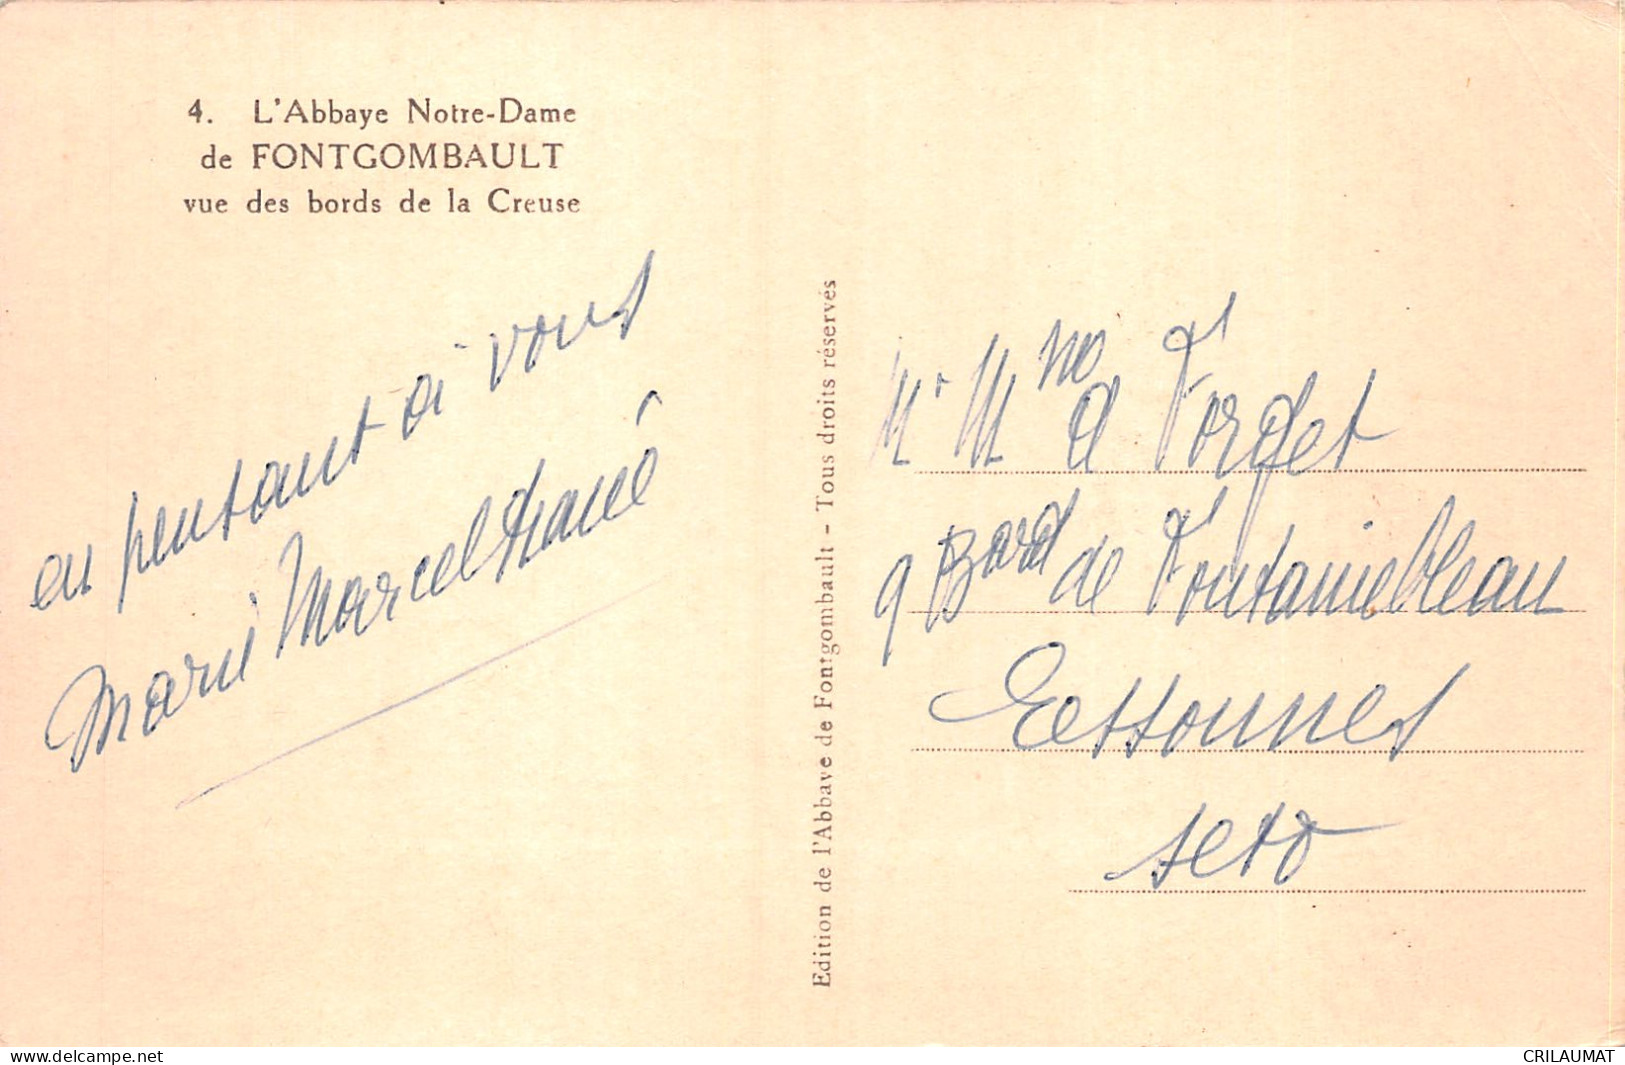 4. L'Abbaye Notre-Dame
de FONTGOMBAULT
vue des bords de la Creuse
en pensant à vous
Marie Marcel
Edition de l'Abbaye de Fontgombault - Tous droits réservés
Mr Mme A Forget
9 Bard de Fontainebleau
Essonnes
S et O
delcampe.net
CRILAUMAT